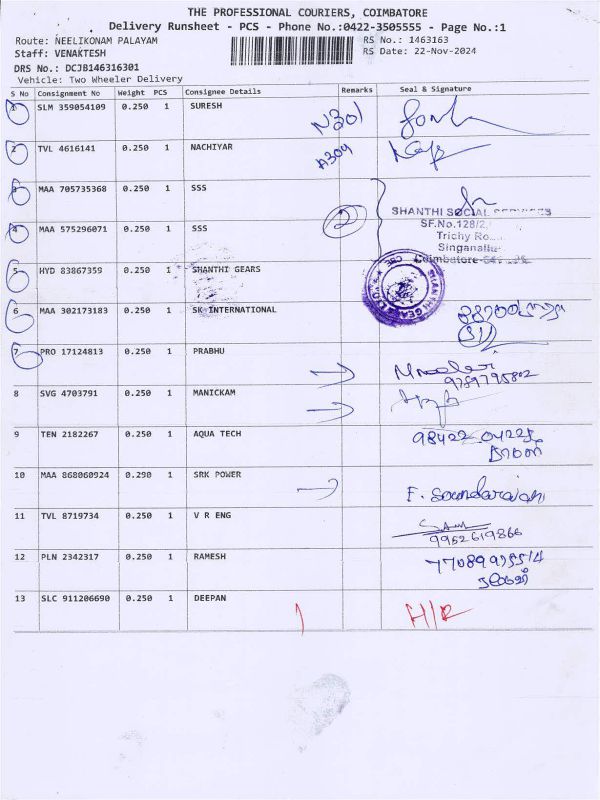 THE PROFESSIONAL COURIERS, COIMBATORE
Delivery Runsheet - PCS - Phone No.:0422-3505555 - Page No.:1
Route: NEELIKONAM PALAYAM RS No.: 1463163
Staff: VENAKTESH RS Date: 22-Nov-2024
DRS No.: DCJB146316301
Vehicle: Two Wheeler Delivery
S No Consignment No Weight PCS Consignee Details Remarks Seal & Signature
1 SLM 359054109 0.250 1 SURESH N301
2 TVL 4616141 0.250 1 NACHIYAR A304
3 MAA 705735368 0.250 1 SSS
4 MAA 575296071 0.250 1 SSS 2
SHANTHI SOCIAL SERVICES
SF.No.128/2,
Trichy
Singanallur
Coimbatore
5 HYD 83867359 0.250 1 SHANTHI GEARS
SHANTHI GEARS CBE
6 MAA 302173183 0.250 1 SK INTERNATIONAL
7 PRO 17124813 0.250 1 PRABHU
9789795802
8 SVG 4703791 0.250 1 MANICKAM
9 TEN 2182267 0.250 1 AQUA TECH 98422 04225
10 MAA 868060924 0.290 1 SRK POWER F. Soundararajan
11 TVL 8719734 0.250 1 V R ENG
9952619866
12 PLN 2342317 0.250 1 RAMESH
13 SLC 911206690 0.250 1 DEEPAN H/R